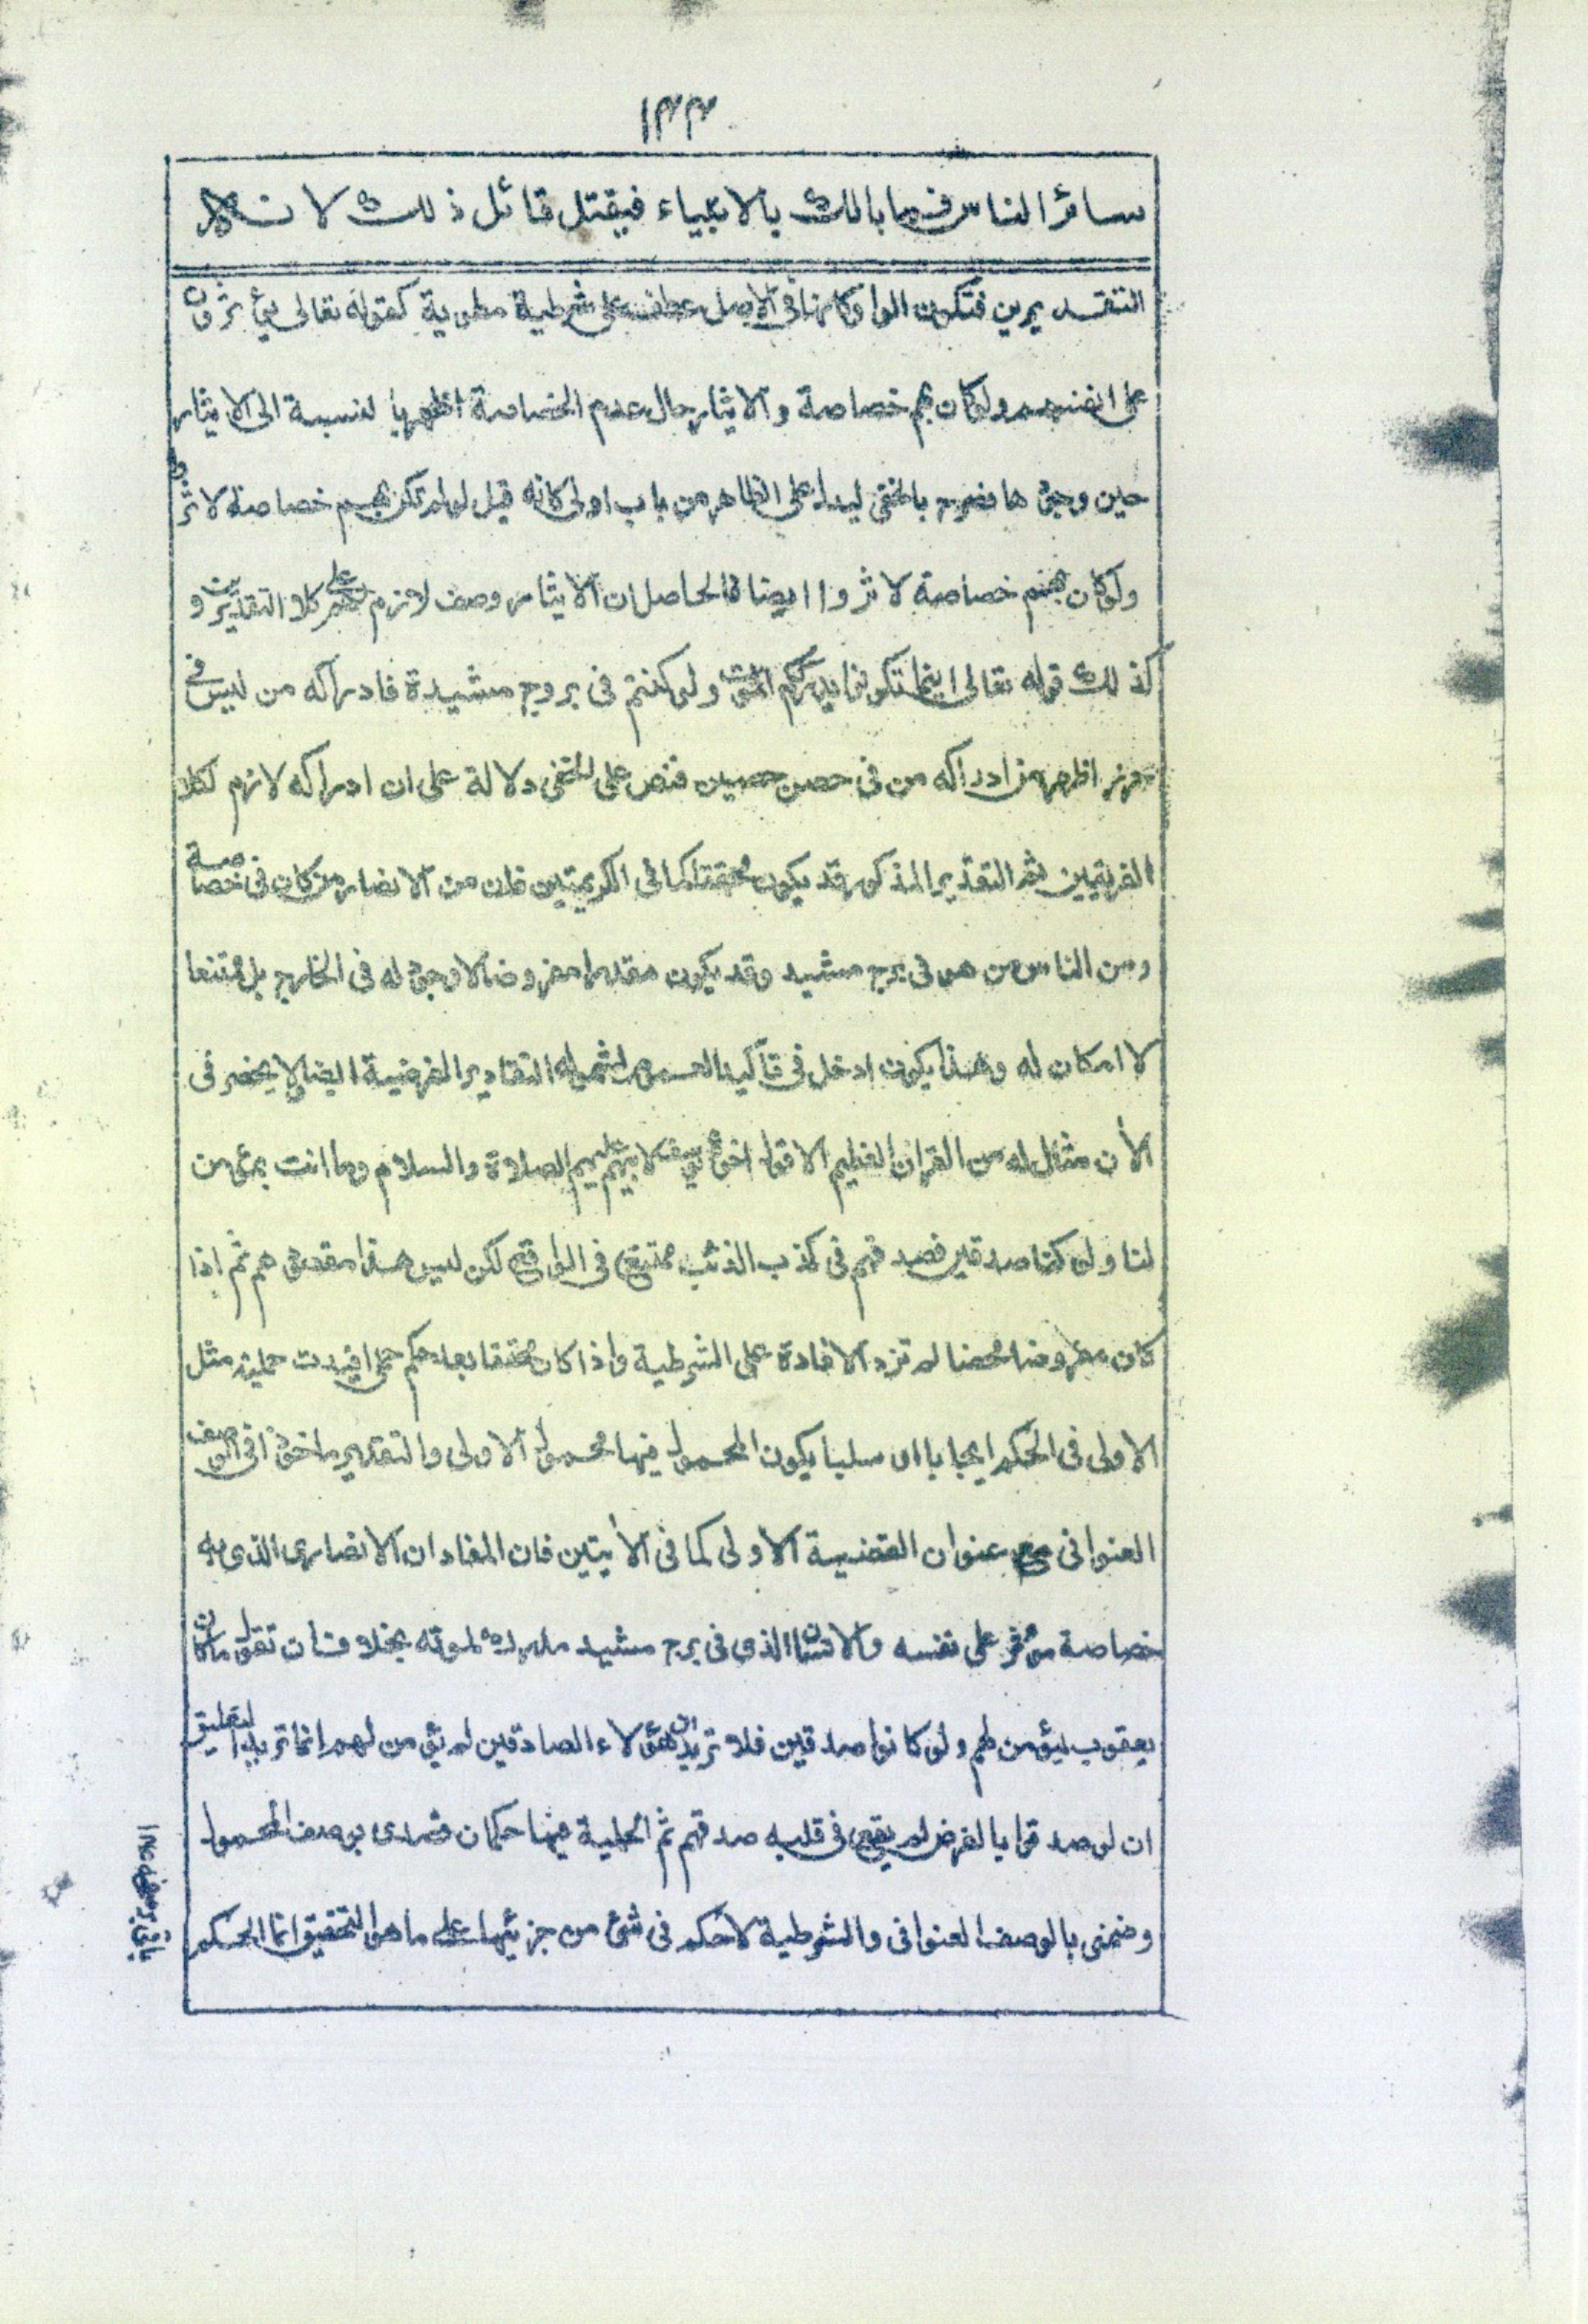 ١٣٣
سائر الناس فما بالك بالانبياء فيقتل قائل ذلك لانه لا
التقديرين فتكون الواو كانها فى الاصل عطف على شرطية مطوية كقوله تعالى يؤثرون
على انفسهم ولو كان بهم خصاصة والايثار حال عدم الخصاصة اظهر بالنسبة الى الايثار
حين وجودها فصرح بالخفى ليدل على الظاهر من باب اولى كانه قيل لو لم تكن بهم خصاصة لاثروا
ولو كان بهم خصاصة لاثروا ايضا فالحاصل ان الايثار وصف لازم لهم على كلا التقديرين و
كذلك قوله تعالى اينما تكونوا يدرككم الموت ولو كنتم فى بروج مشيدة فادراكه من ليس فى
حرز اظهر من ادراكه من فى حصن حصين فنص على الخفى دلالة على ان ادراكه لازم لكلا
الفريقين ثم التقدير المذكور قد يكون محققا كما فى الكريمتين فان من الانصار من كان فى خصاصة
ومن الناس من هو فى برج مشيد وقد يكون مقدرا مفروضا لا وجود له فى الخارج بل ممتنعا
لا امكان له وهذا يكون ادخل فى تأكيد العموم لشموله التقادير الفرضية ايضا لا يحضرنى
الأن مثال له من القران العظيم الا قول اخوة يوسف لابيهم عليهم الصلاة والسلام وما انت بمؤمن
لنا ولو كنا صدقين فصدقهم فى كذب الذئب ممتنع فى الواقع لكن ليس هذا مقصودهم ثم إذا
كان مفروضا محضا لم تزد الافادة على الشرطية واذا كان محققا بعد حكم حملى افيدت حملية مثل
الاولى فى الحكم ايجابا او سلبا يكون المحمول فيها محمول الاولى والتقدير ماخوذا فى الوصف
العنوانى مع عنوان القضية الاولى كما فى الأيتين فان المفاد ان الانصارى الذى به
خصاصة موثر على نفسه والانسان الذى فى برج مشيد مدرك لموته بخلاف ان تقول ما كان
يعقوب ليؤمن لهم ولو كانوا صدقين فلا تريد ان هؤلاء الصادقين لم يؤمن لهم انما تريد التعليق
ان لو صدقوا بالفرض لم يقع فى قلبه صدقهم ثم الحملية فيها حكمان قصدى بوصف المحمول
وضمنى بالوصف العنوانى والشرطية لا حكم فى شئ من جزئيها على ما هو التحقيق انما الحكم